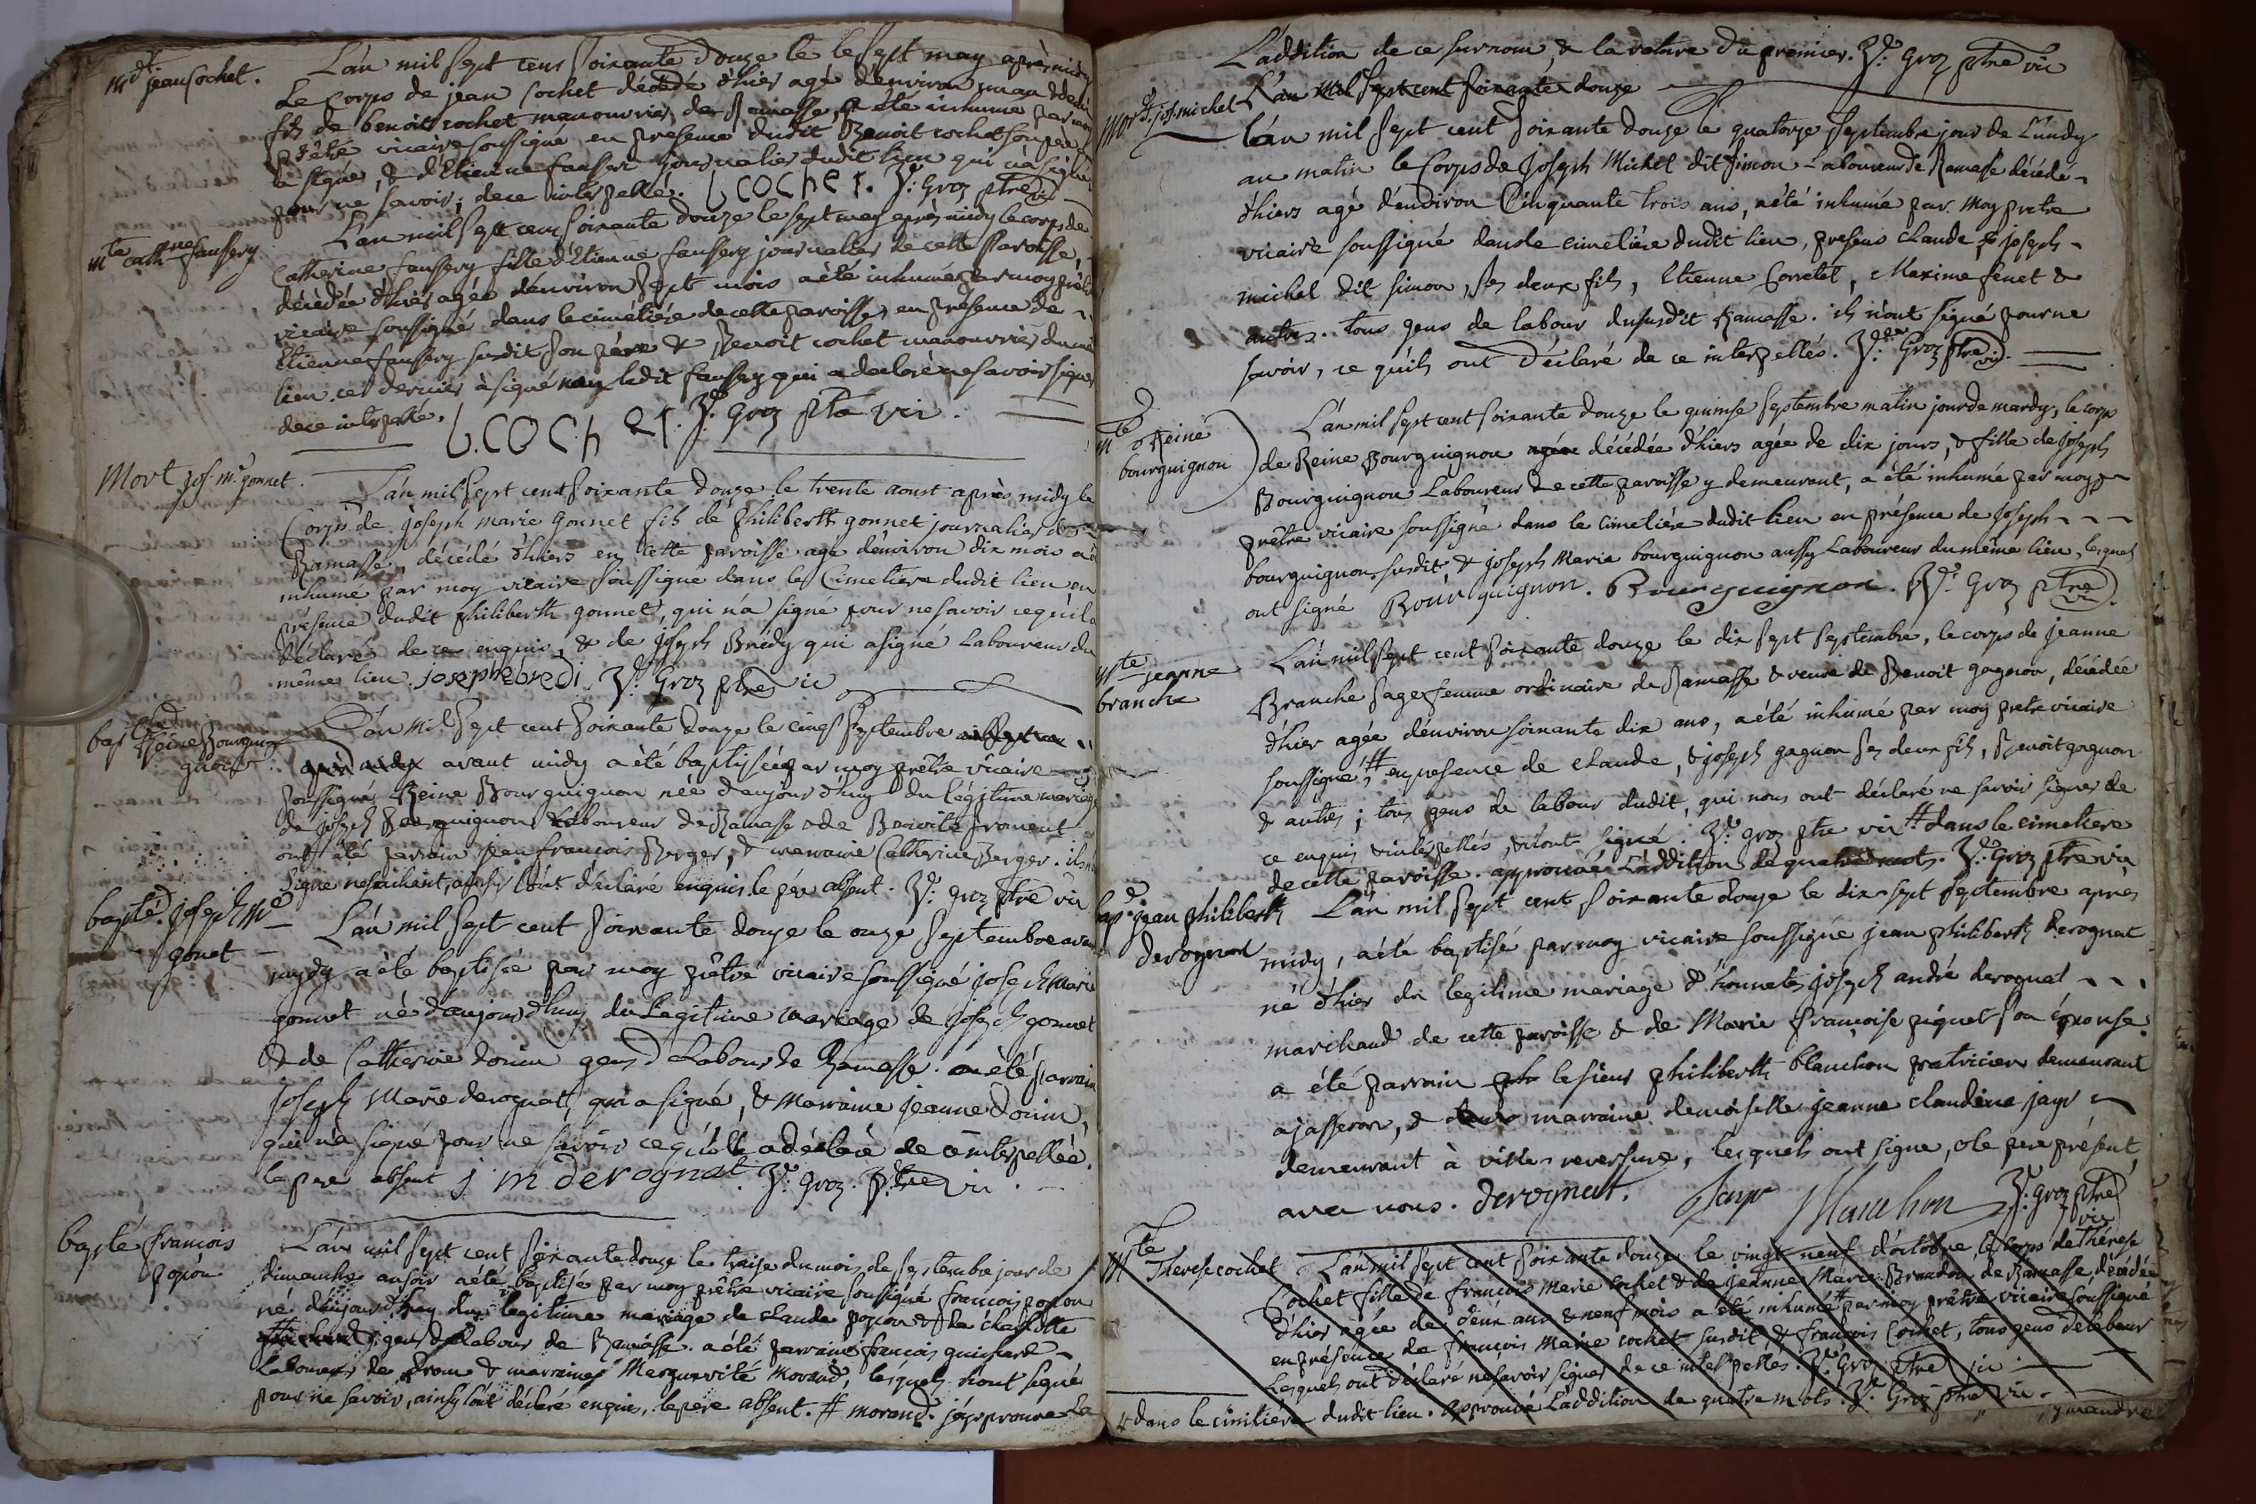 mort jean Cochet.
L'an mil sept cens soixante douze le le sept may après midy
Le corps de jean Cochet décédé d'hier agé d'environ un an & demi
fils de benoit cochet manouvrier de Ramasse, a été inhumé par moy
prêtre vicaire soussigné en presence dudit Benoit cochet son père
a signé, & d'Etienne faussery journalier dudit lieu qui n'a signé
pour ne savoir, de ce interpellé. b cocher. J.h Groz ptre vic
mte cathne faussery
L'an mil sept cens soixante douze le sept may après midy le corps de
Catherine faussery fille d'Etienne faussery journalier de cette Paroisse,
décédée d'hier agée d'environ sept mois a été inhumée par moy prêtre
vicaire soussigné dans le cimetière de cette paroisse, en présence de
Etienne faussery susdit son père & Benoit cochet manouvrier du mê
lieu ce dernier à signé non ledit faussery qui a declaré ne savoir signer
de ce interpellé.
b. COCh er. J.h Groz ptre vic.
Mort jos. mie gonnet.
L'an mil sept cent soixante douze le trente aoust après midy le
Corps de joseph marie Gonnet fils de philiberth gonnet journalier de
Ramasse, décédé d'hiers en cette paroisse agé d'environ dix mois a été
inhumé par moy vicaire soussigné dans le Cimetiere dudit lieu en
présence dudit philiberth gonnet, qui n'a signé pour ne savoir ce qu'il a
déclaré de ce enquis, & de joseph Brédy qui a signé Laboureur du
même lieu. joseph bredi. J.h Groz ptre vic
bapt Reine Bourgui
gnon
L'an mil sept cent soixante douze le cinq septembre
après midy avant midy a été baptisée par moy prêtre vicaire
soussigné Reine Bourguignon née d'aujourd'huy du légitime mariage
de joseph Bourguignon laboureur de Ramasse & de Benoite froment
ont été parrain jean francois Berger, & marraine Catherine Berger. ils n'ont
signé ne sachant, ainsy l'ont déclaré enquis. le père absent. J.h groz ptre vic
bapté. joseph me
gonet
L'an mil sept cent soixante douze le onze septembre avant
mydy a été baptisé par moy prêtre vicaire soussigné joseph Marie
gonnet né d'aujourd'huy du Légitime mariage de joseph gonnet
& de Catherine donin gens d Labour de Ramasse. a été parrain
joseph Marie derognat, qui a signé, & Marraine jeanne donin,
qui n'a signé pour ne savoir ce qu'elle a déclaré de ce interpellée.
le pere absent j m derognat. J.h Groz. Ptre vic.
bapté françois
popon
L'an mil sept cent soixante douze le traise du mois de septembre jour de
dimanche au soir a été baptisé par moy prêtre vicaire soussigné françois popon
né d'aujourd'huy du legitime mariage de claude popon & de charlotte
guichard # gens de labour de Ramasse. a été parrain françois guichard
Laboureur de drom & marraine Marguerite Morand, lesquels n'ont signé
pour ne savoir, ainsy l'ont déclaré enquis, le pere absent. # morand. j'approuve La
L'addition de ce surnom, & la rature du premier. J.h Groz ptre vic
Mort. jos. michel
L'an Mil Sept cent soixante douze
L'an mil sept cent soixante douze le quatorze septembre jour de Lundy
au matin le Corps de Joseph Michel dit simon Laboureur de Ramasse décédé
d'hiers agé d'environ Cinquante trois ans, a été inhumé par Moy pretre
vicaire soussigné dans le cimetière dudit lieu, presens claude, & joseph
michel dit simon, ses deux fils, Etienne Corretel, Maxime fenet &
autres. tous gens de labour du susdit Ramasse. ils n'ont signé pour ne
savoir, ce qu'ils ont déclaré de ce interpellés. J.h Groz ptre vic.
mte Reine
bourguignon
L'an mil sept cent soixante douze le quinse septembre matin jour de mardy, le corps
de Reine Bourguignon agée décédée d'hiers agée de dix jours, & fille de joseph
Bourguignon Laboureur de cette paroisse y demeurant, a été inhumé par moy
prêtre vicaire soussigné dans le cimetière dudit lieu en présence de joseph
bourguignon susdit & joseph Marie bourguignon aussy Laboureur du même lieu, lesquels
ont signé Bourguignon. Bourguignon. J.h Groz ptre vic.
mte jeanne
branche
L'an mil sept cent soixante douze le dix sept septembre, le corps de jeanne
Branche sage femme ordinaire de Ramasse & veuve de Benoit gagnon, décédée
d'hier agée d'environ soixante dix ans, a été inhumé par moy pretre vicaire
soussigné, # en presence de claude, & joseph gagnon ses deux fils, Benoit gagnon
& autres; tous gens de labour dudit, qui nous ont déclaré ne savoir signer de
ce enquis & interpellés, & n'ont signé. J.h groz ptre vic # dans le cimetiere
de cette paroisse. approuvé L'addition de quatre mots. J.h Groz ptre vic
bapé. jean philiberth
derognat
L'an mil sept cent soixante douze le dix sept septembre après
midy, a été baptisé par moy vicaire soussigné jean philiberth derognat
né d'hier du legitime mariage d'honnetes joseph andré derognat
marchand de cette paroisse & de Marie françoise piquet son épouse.
a été parrain le sieur philiberth blanchon praticien demeurant
a jasseron, & marraine demoiselle jeanne claudine jayr
demeurant à ville reversure, lesquels ont signé, & le pere présent
avec nous. derognat. Jayr Blanchon J.h groz ptre vic
Mte Therese cochet
L'an mil sept cent soixante douze le vingt neuf d'octobre, le corps de Thérese
Cochet fille de françois Marie cochet & de jeanne Marie Brandon de Ramasse, décédée
d'hier agée de deux ans & neuf mois a été inhumée # par moy prêtre vicaire soussigné
en présence de françois Marie cochet susdit & françois Cochet, tous gens de labour
Lesquels ont déclaré ne savoir signer de ce interpellés. J.h Groz ptre vic.
# dans le cimitière dudit lieu. approuvé L'addition de quatre mots. J.h Groz ptre vic.